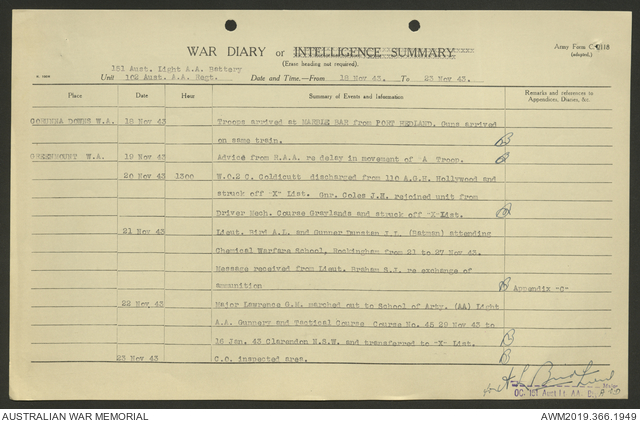 WAR DIARY or INTELLIGENCE SUMMARY
Army Form C.2118
(adapted.)
(Erase heading not required).
151 Aust. Light A.A. Battery
Unit 102 Aust. A.A. Regt. Date and Time.—From 18 Nov 43. To 23 Nov 43.
Place Date Hour Summary of Events and Information Remarks and references to Appendices, Diaries, &c.
CORUNNA DOWNS W.A. 18 Nov 43 Troops arrived at MARBLE BAR from PORT HEDLAND. Guns arrived
on same train.
GREENMOUNT W.A. 19 Nov 43 Advice from R.A.A. re delay in movement of "A" Troop.
20 Nov 43 1300 W.O.2 C. Coldicutt discharged from 110 A.G.H. Hollywood and
struck off "X" List. Gnr. Coles J.H. rejoined unit from
Driver Mech. Course Graylands and struck off "X" List.
21 Nov 43 Lieut. Bird A.L. and Gunner Dunstan J.L. (Batman) attending
Chemical Warfare School, Rockingham from 21 to 27 Nov 43.
Message received from Lieut. Braham S.J. re exchange of
ammunition Appendix "C"
22 Nov 43 Major Lawrence G.M. marched out to School of Arty. (AA) Light
A.A. Gunnery and Tactical Course Course No. 45 29 Nov 43 to
16 Jan. 43 Clarendon N.S.W. and transferred to "X" List.
23 Nov 43 C.O. inspected area.
Major
OC. 151 Aust Lt AA
AUSTRALIAN WAR MEMORIAL AWM2019.366.1949